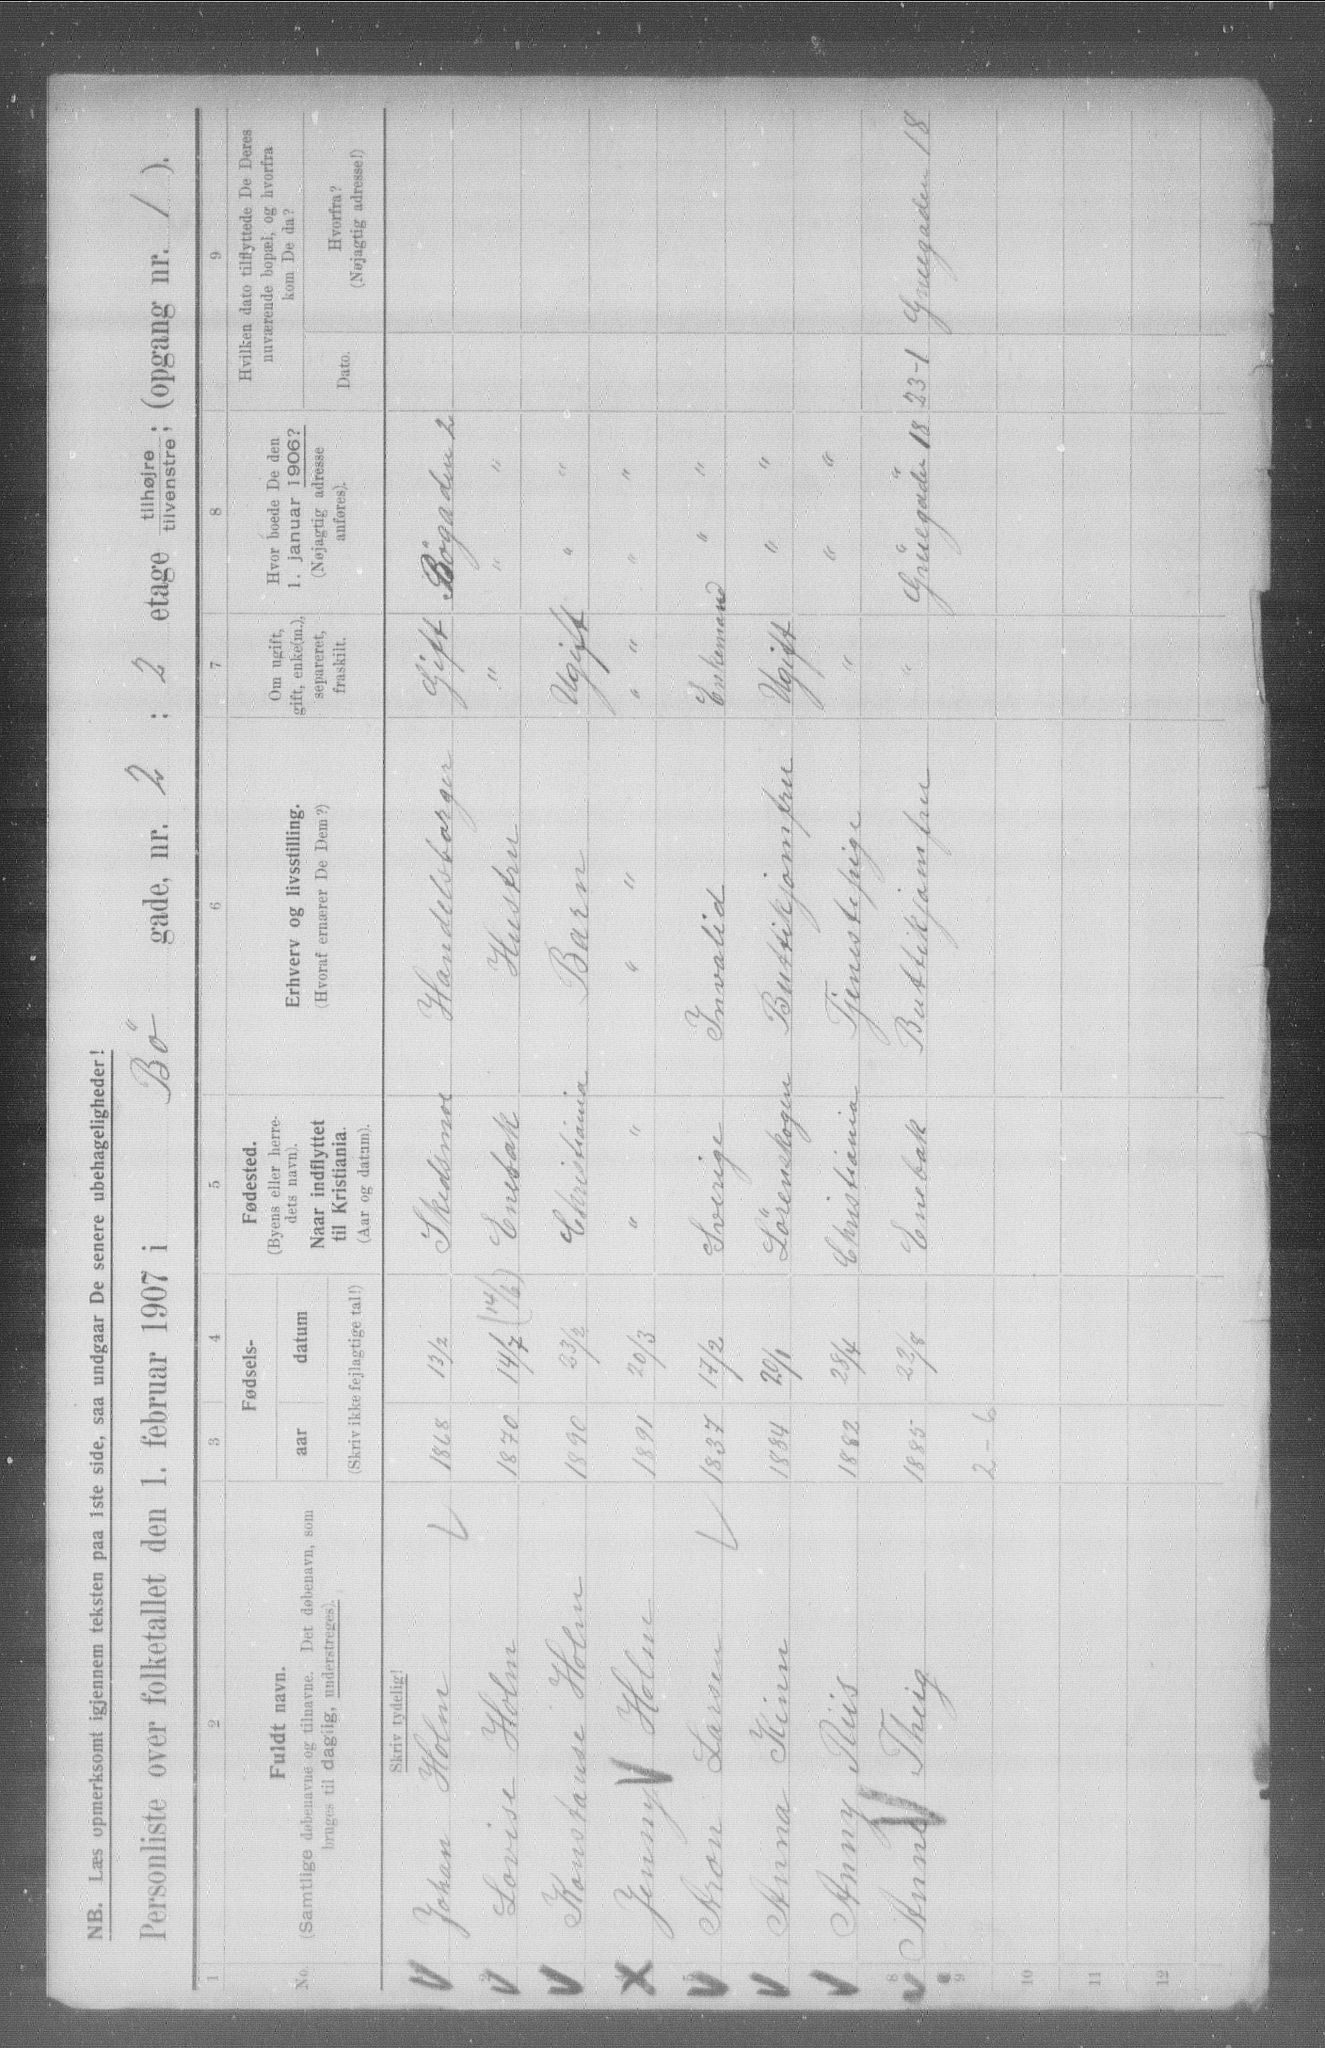 NB. Læs opmerksomt igjennem teksten paa 1ste side, saa undgaar De senere ubehageligheder!
Personliste over folketallet den 1. februar 1907 i Bö gade, nr. 2 ; 2 etage tilhøjre / tilvenstre ; (opgang nr. 1 ).
1 2 3 4 5 6 7 8 9
No. Fuldt navn. (Samtlige døbenavne og tilnavne. Det døbenavn, som bruges til daglig, understreges).
Fødsels- aar datum (Skriv ikke fejlagtige tal!)
Fødested. (Byens eller herredets navn). Naar indflyttet til Kristiania. (Aar og datum).
Erhverv og livsstilling. (Hvoraf ernærer De Dem?)
Om ugift, gift, enke(m.), separeret, fraskilt.
Hvor boede De den 1. januar 1906? (Nøjagtig adresse anføres).
Hvilken dato tilflyttede De Deres nuværende bopæl, og hvorfra kom De da?
Dato. Hvorfra? (Nøjagtig adresse!)
Skriv tydelig!
Johan Holm 1868 13/2 Skedsmoe Handelsborger Gift Bögaden 2
Lovise Holm 1870 14/7 (14/6) Enebak Hustru " " "
Konstanse Holm 1890 23/2 Christiania Barn Ugift " "
Jenny Holm 1891 20/3 " " " " " " " "
Aron Larsen 1837 17/2 Sverige Invalid Enkemand " "
Anna Kinn 1884 20/1 Lörenskogen Buttikjomfru Ugift " "
Anny Riis 1882 28/4 Christiania Tjenestepige " " "
8 Anne Thuig 1885 22/8 Enebak Buttikjomfru " Gruegaden 18 23-1 Gruegaden 18
9 2-6
10
11
12